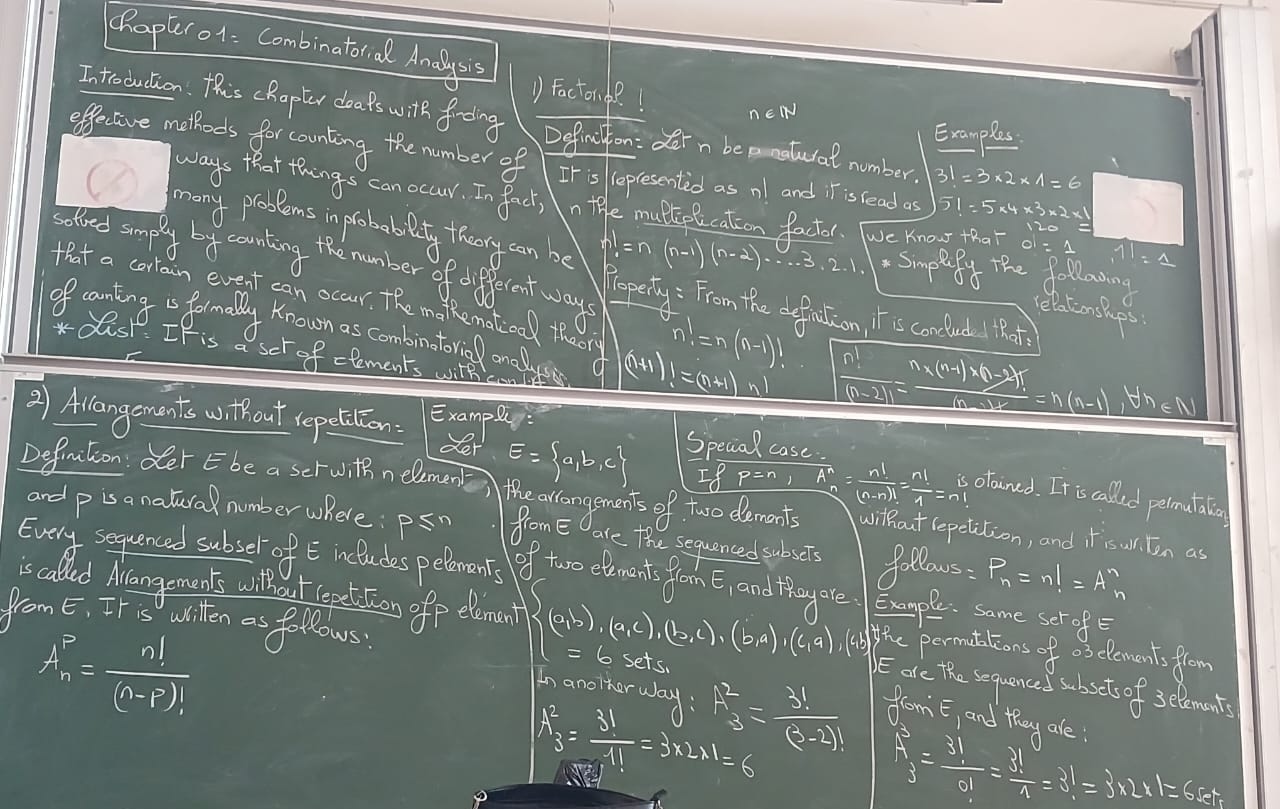 Chapter 01: Combinatorial Analysis
Introduction: This chapter deals with finding
effective methods for counting the number of
ways that things can occur. In fact,
many problems in probability theory can be
solved simply by counting the number of different ways
that a certain event can occur. The mathematical theory
of counting is formally known as combinatorial analysis.
* List: It is a set of elements with
1) Factorial !
n ∈ ℕ
Definition: Let n be a natural number.
It is represented as n! and it is read as
n the multiplication factor.
n! = n (n-1) (n-2) ..... 3. 2. 1.
Property: From the definition, it is concluded that:
n! = n (n-1)!
(n+1)! = (n+1) n!
Examples:
3! = 3 x 2 x 1 = 6
5! = 5 x 4 x 3 x 2 x 1
= 120
We know that 0! = 1, 1! = 1
* Simplify the following
relationships:
n!/(n-2)! = n x (n-1) x (n-2)!/(n-2)! = n (n-1), ∀n ∈ N
2) Arrangements without repetition:
Definition: Let E be a set with n element,
and p is a natural number where: p ≤ n
Every sequenced subset of E includes p elements
is called Arrangements without repetition of p element
from E. It is written as follows:
A_n^p = n!/(n-p)!
Example:
Let E = {a,b,c}
the arrangements of two elements
from E are the sequenced subsets
of two elements from E, and they are:
{(a,b), (a,c), (b,c), (b,a), (c,a), (c,b)
= 6 sets.
In another way: A_3^2 = 3!/(3-2)!
A_3^2 = 3!/1! = 3x2x1 = 6
Special case:
If p=n, A_n^n = n!/(n-n)! = n!/1 = n! is otained. It is called permutation
without repetition, and it is writen as
follows: P_n = n! = A_n^n
Example: same set of E
the permutations of 03 elements from
E are the sequenced subsets of 3 elements
from E, and they are:
A_3^3 = 3!/0! = 3!/1 = 3! = 3x2x1 = 6 sets